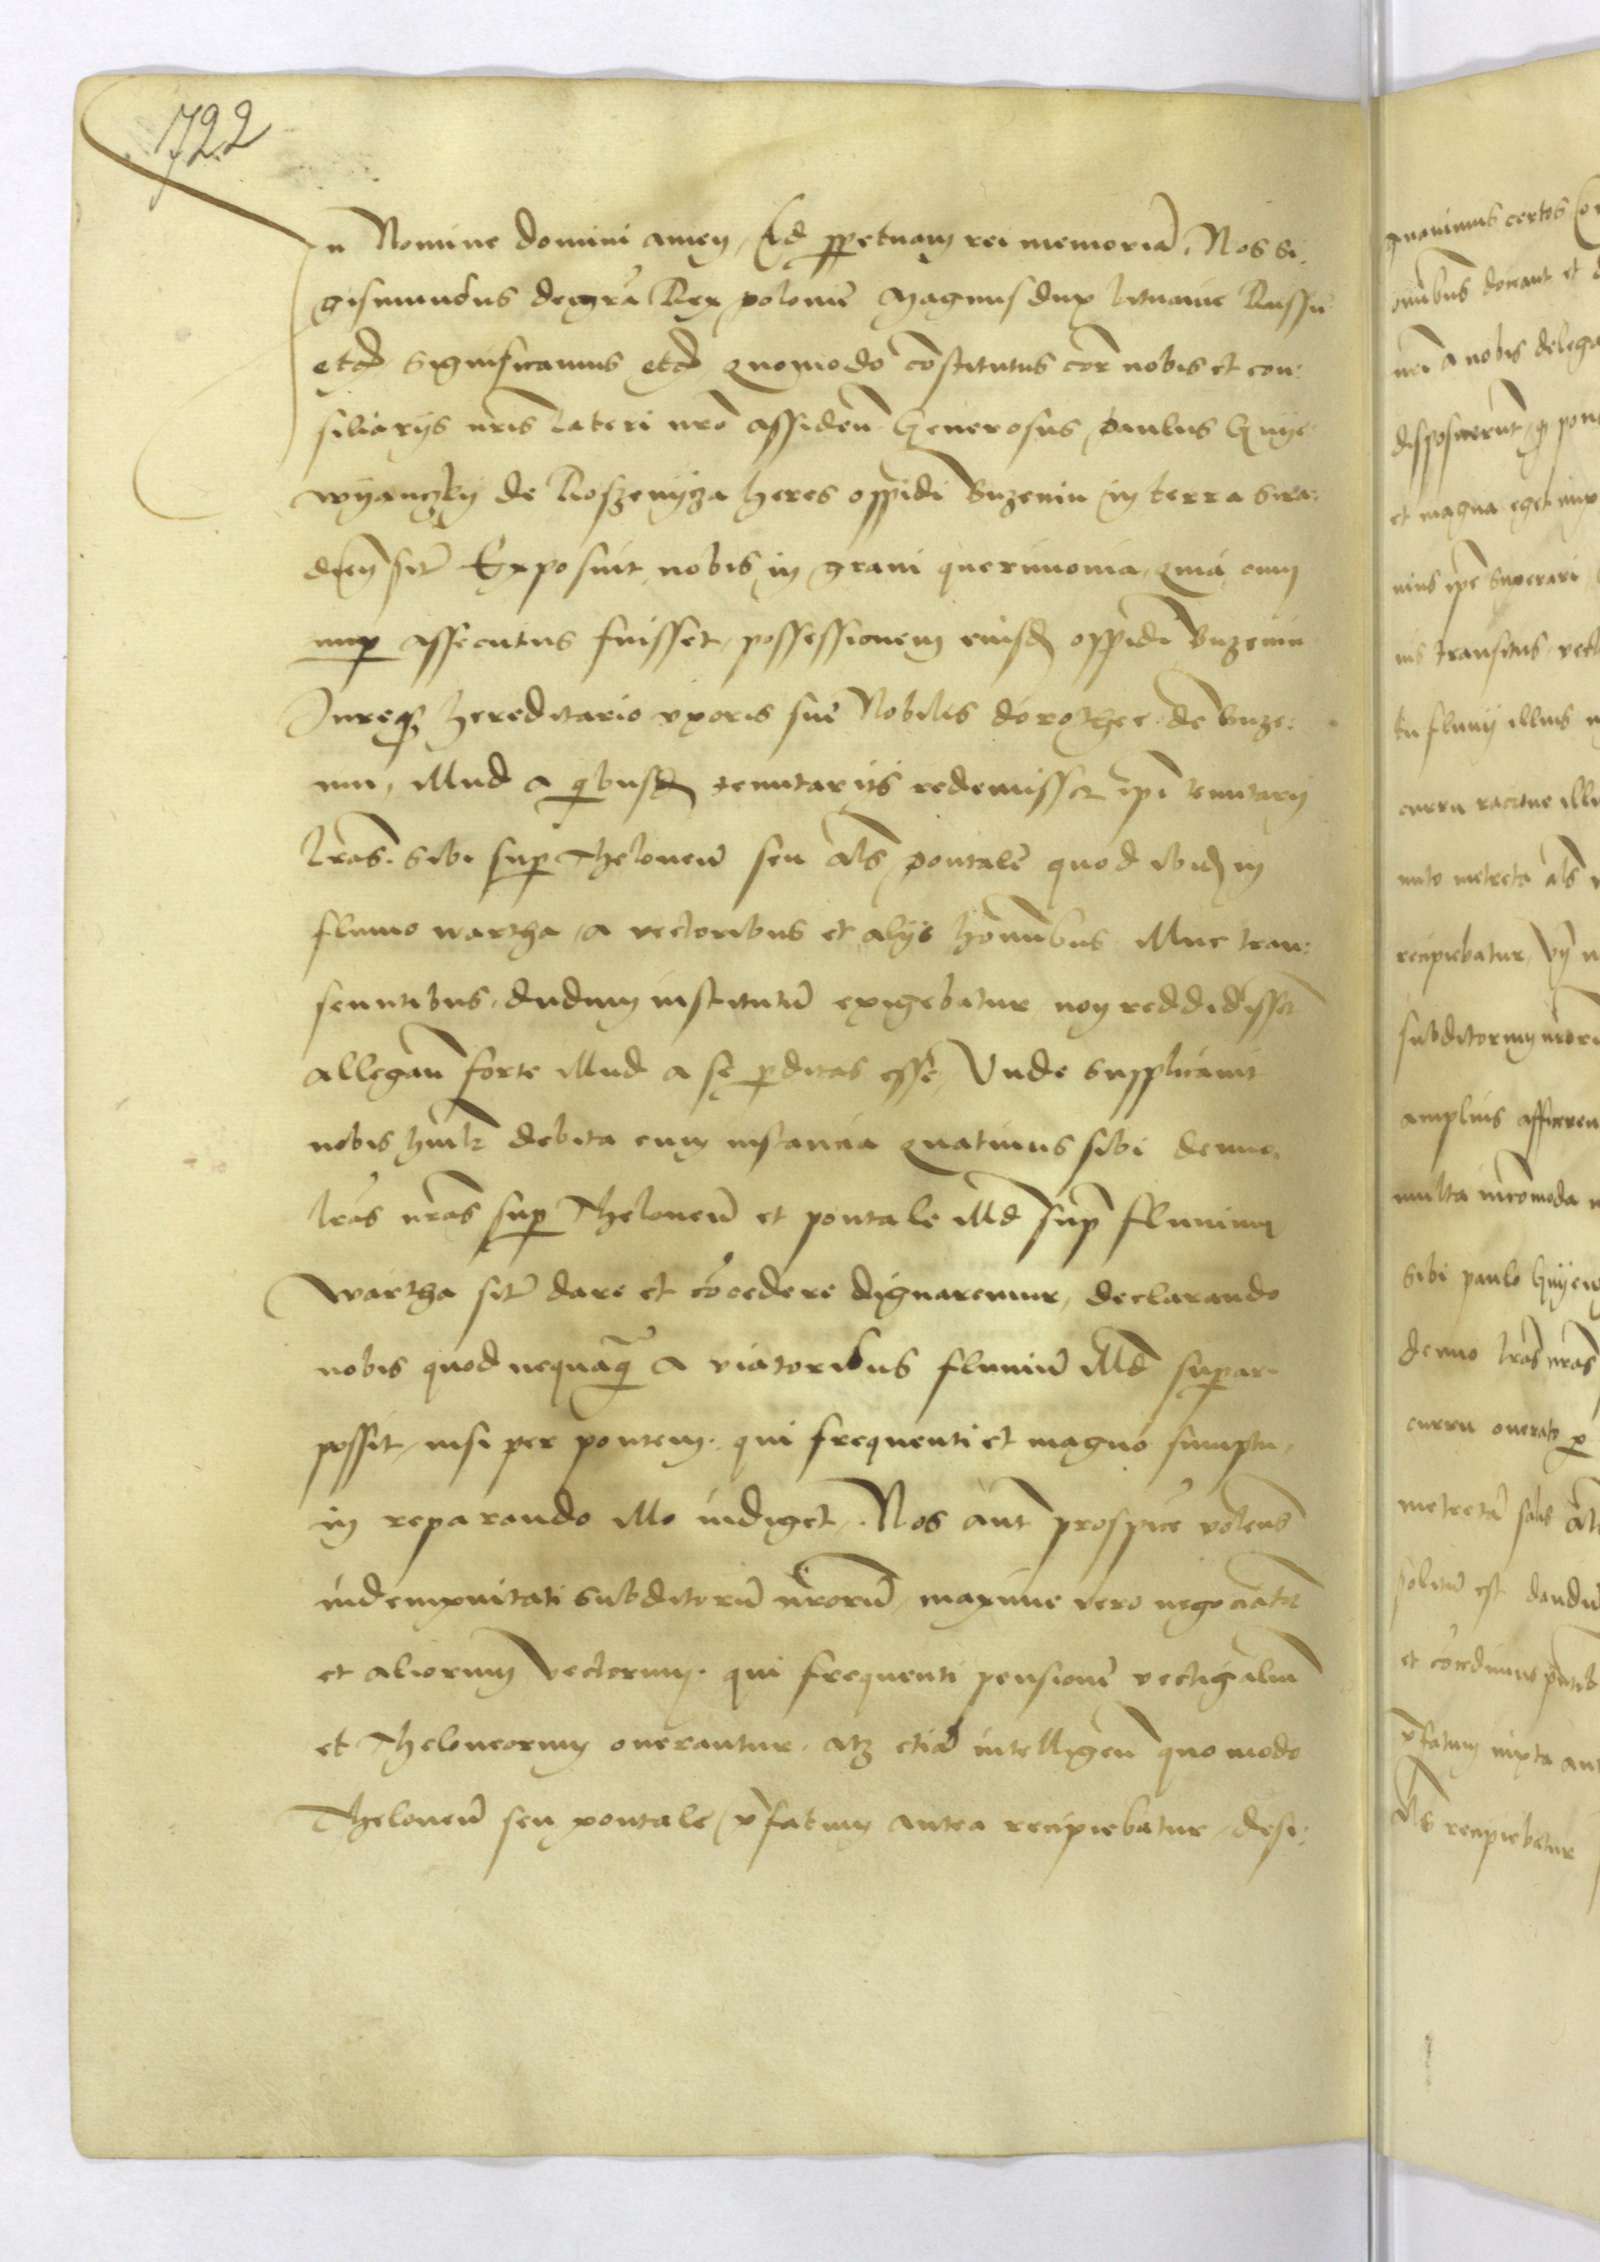 722
In Nomine domini amen, Ad ppetuam rei memoriā. Nos Si:
gismundus dei gra Rex polonie Magnus dux Lituanie Russie
etcz Significamus etcz Quomodo cōstitutus corā nobis et con:
siliarijs nris lateri nro assideñ Generosus Paulus Gnye
wyanzky de Roszenycza heres oppidi Buzenin in terra Sira:
dieñ sitr Exposuit nobis in gravi querimonia, quia cum
nup assecutus fuisset, possessionem eiusd oppidi Buzenin
Jureqz hereditario uxoris sue Nobilis dorothee de Buze:
nin, illud a qbusd tenutarijs redemisset ipi tenutarij
lras sibi sup Theloneū seu als pontale quod ibid in
fluvio wartha, a vectoribus et alijs hominibus illuc tran:
seuntibus, dudum institutū exigebatur non reddidisset
allegañ forte illud a se pditas esse, Unde Supplicavit
nobis huilr debita cum instancia quatinus sibi denuo
lras nras sup Theloneū et pontale illd supr fluvium
Wartha sitr dare et cōcedere dignaremur, declarando
nobis quod nequaqz a viatoribus fluviū illd supari
possit, nisi per pontem, qui frequenti et magno sumptu,
in reparando illo indiget. Nos aut prospice volens
indempnitati Subditorū nrorū, maxime vero negociator
et aliorum vectorum, qui frequenti pensione vectigaliū
et Theloneorum onerantur, atz etiā intelligeñ quo modo
Theloneū seu pontale pfatum antea recipiebatur, desi:
quavimus certos
omibus doceant et
nri a nobis delega
disposuerūt, q pon
et magna eget
nius ipe Superari
nis transitus, vect
tu fluvij illius
curru
nuto metreta als
recipiebatur,
subditorum nrorū
amplius afficeren
multa incōmoda
Sibi paulo Gnyew
denuo lras nras
curru onerato p
metretā salis als
solitū est dandū
et cōcedimus pntib
pfatum iuxta ant
als recipiebatur